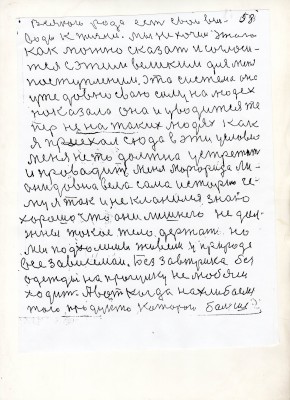 58
всякого рода ест свои вы-
воды к жизни. мы не хочим этого
как можно сказат и согласи-
тся с этим великим для меня
поступлении. эта система она
уже довно свою силу на людех
показала она и уводится те
пер не на таких людях как
я приехал сюда в эти условия
меня нето должна устрет
и проводит меня Маргарита Ли-
онидовна вела сама историю
я так и не кланился знаю
хорошо что они лишнего не дол-
жны такое тело держат но
мы подходим живем у природе
все зависмаи. Без завтрика без
одежды на прогулку не любят
ходит. А вот когда нахлибаеш
того продукта которого балше